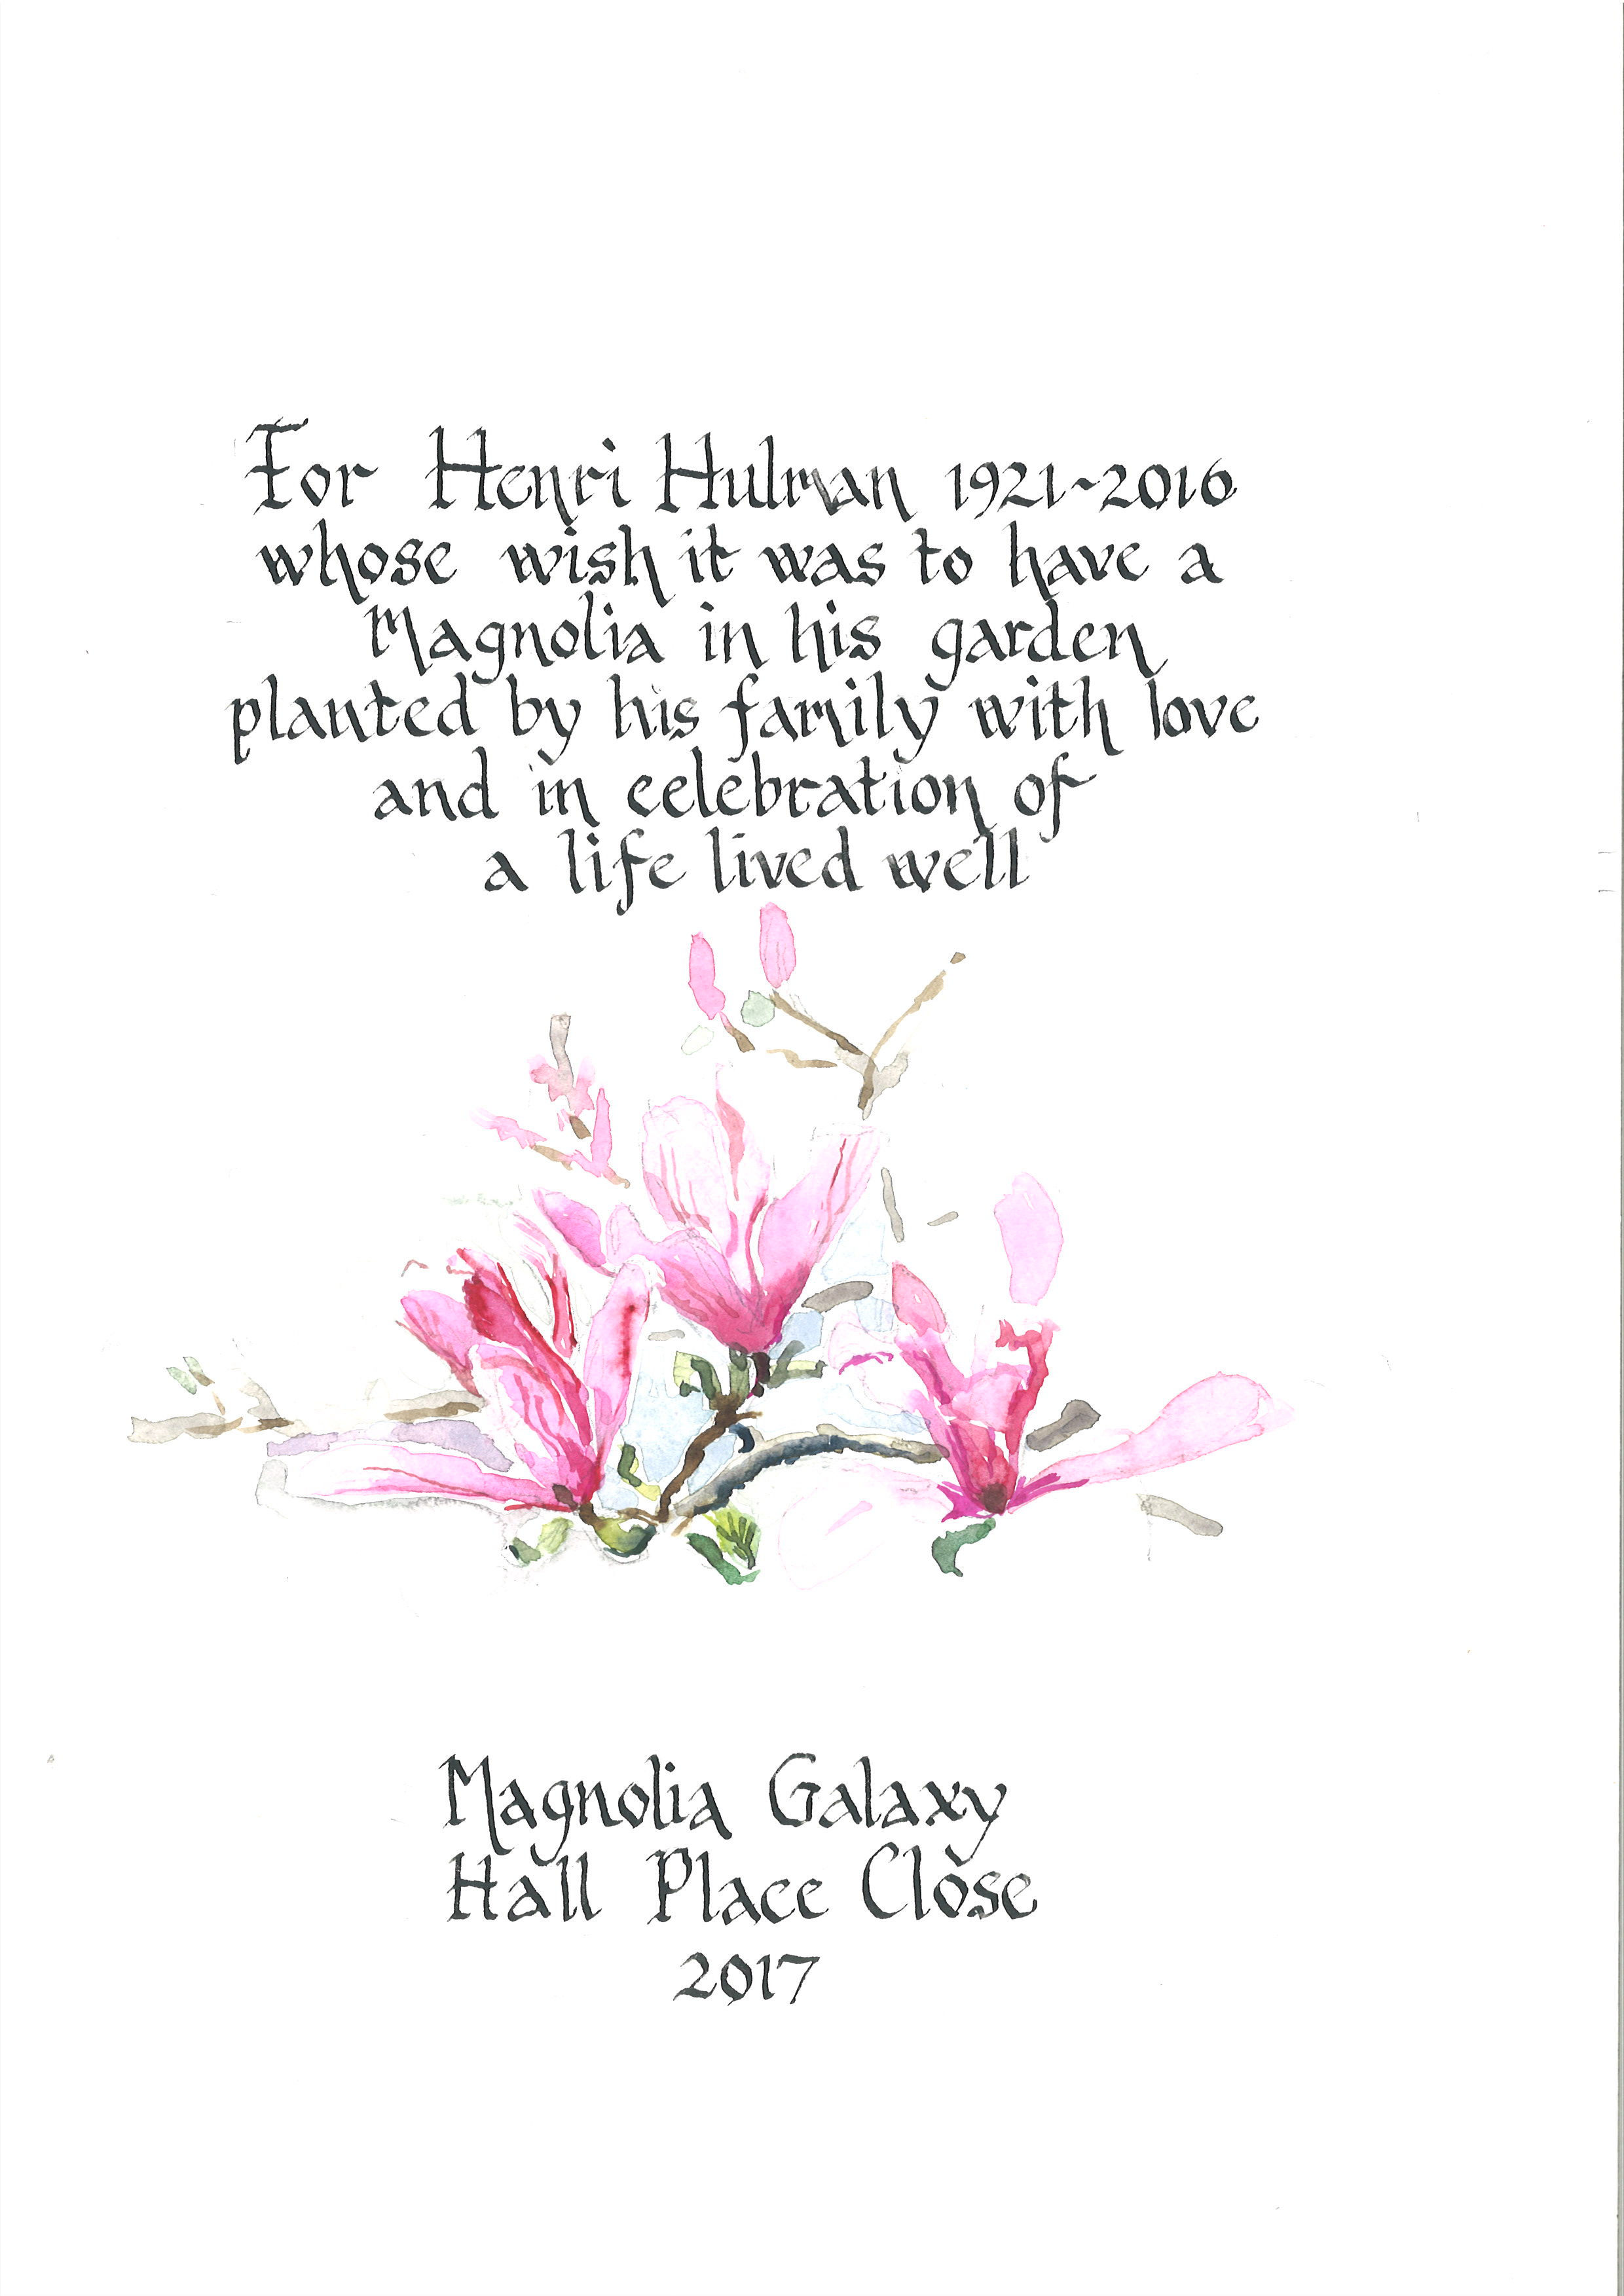 For Henri Hulman 1921~2016
whose wish it was to have a
Magnolia in his garden
planted by his family with love
and in celebration of
a life lived well
Magnolia Galaxy
Hall Place Close
2017